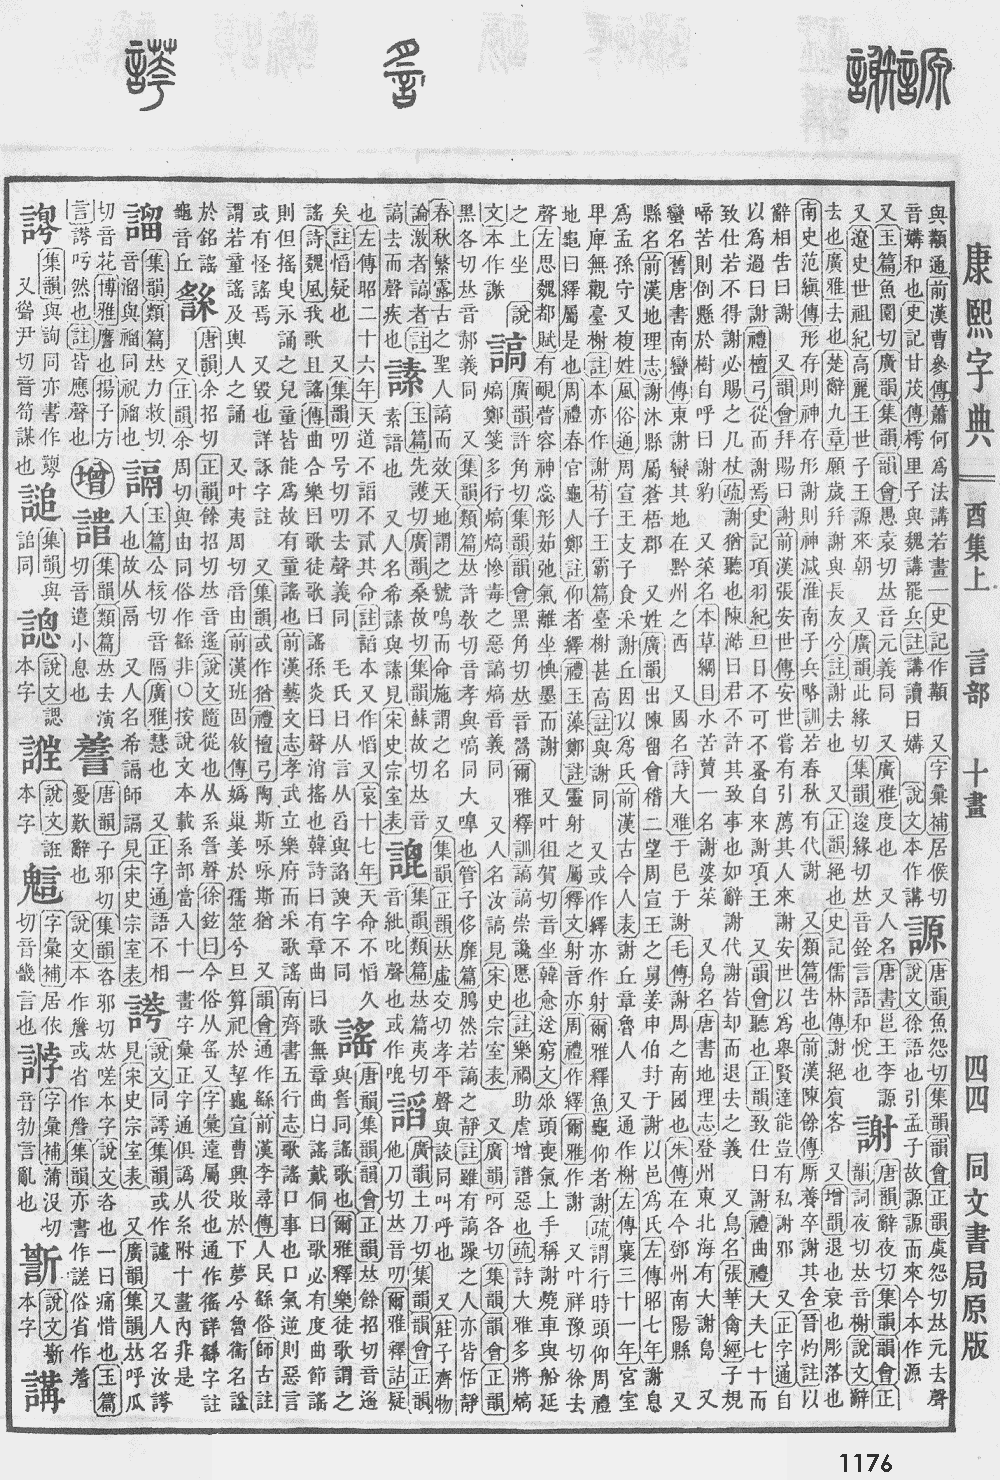 康熙字典 酉集上 言部 十畫 四四 同文書局原版
謜謝
謠
謗
與顜通前漢曹參傳蕭何爲法講若畫一史記作顜 又字彙補居候切
音媾和也史記甘茂傳樗里子與魏講罷兵註講讀曰媾 說文本作講
謜
唐韻魚怨切集韻韻會正韻虞怨切𠀤元去聲
說文徐語也引孟子故謜謜而來今本作源
又玉篇魚園切廣韻集韻韻會愚袁切𠀤音元義同 又廣雅度也 又人名唐書邕王李謜
又遼史世祖紀高麗王世子王謜來朝 又廣韻此緣切集韻逡緣切𠀤音銓言語和悅也
謝
唐韻辭夜切集韻韻會正
韻詞夜切𠀤音榭說文辭
去也廣雅去也楚辭九章願歲幷謝與長友兮註謝去也 又正韻絕也史記儒林傳謝絕賓客 又增韻退也衰也彫落也
南史范縝傳形存則神存形謝則神滅淮南子兵略訓若春秋有代謝 又類篇告也前漢陳餘傳厮養卒謝其舍晉灼註以
辭相告曰謝 又韻會拜賜曰謝前漢張安世傳安世嘗有引薦其人來謝安世以爲舉賢達能豈有私謝邪 又正字通自
以爲過曰謝禮檀弓從而謝焉史記項羽紀旦日不可不蚤自來謝項王 又韻會聽也正韻致仕曰謝禮曲禮大夫七十而
致仕若不得謝必賜之几杖疏謝猶聽也陳澔曰君不許其致事也如辭謝代謝皆却而退去之義 又鳥名張華禽經子規
啼苦則倒懸於樹自呼曰謝豹 又菜名本草綱目水苦蕒一名謝婆菜 又島名唐書地理志登州東北海有大謝島 又
蠻名舊唐書南蠻傳東謝蠻其地在黔州之西 又國名詩大雅于邑于謝毛傳謝周之南國也朱傳在今鄧州南陽縣 又
縣名前漢地理志謝沐縣屬蒼梧郡 又姓廣韻出陳留會稽二望周宣王之舅姜申伯封于謝以邑爲氏左傳昭七年謝息
爲孟孫守又複姓風俗通周宣王支子食采謝丘因以爲氏前漢古今人表謝丘章魯人 又通作榭左傳襄三十一年宮室
𤰞庳無觀臺榭註本亦作謝荀子王霸篇臺榭甚高註與謝同 又或作繹亦作射爾雅釋魚龜仰者謝疏謂行時頭仰周禮
地龜曰繹屬是也周禮春官龜人鄭註仰者繹禮玉藻鄭註靈射之屬釋文射音亦周禮作繹爾雅作謝 又叶祥豫切徐去
聲左思魏都賦有靦瞢容神惢形茹弛氣離坐㥏墨而謝 又叶徂賀切音坐韓愈送窮文垂頭喪氣上手稱謝燒車與船延
之上坐 說
文本作
謞
廣韻許角切集韻韻會黑角切𠀤音嗃爾雅釋訓謞謞崇讒慝也註樂禍助虐增譖惡也疏詩大雅多將熇
熇鄭箋多行熇熇慘毒之惡謞熇音義同 又人名汝謞見宋史宗室表 又廣韻呵各切集韻韻會正韻
黑各切𠀤音郝義同 又集韻類篇𠀤許教切音孝與嗃同大嘷也管子侈靡篇鴞然若謞之靜註雖有謞躁之人亦皆恬靜
春秋繁露古之聖人謞而效天地謂之號鳴而命施謂之名 又集韻正韻𠀤虛交切孝平聲與詨同叫呼也 又莊子齊物
論激者謞者註
謞去而聲疾也
謜
玉篇先護切廣韻桑故切集韻蘇故切𠀤音
素諳也 又人名希謜與謜見宋史宗室表
𧪫
集韻類篇𠀤篇夷切
音紕𠮟聲也或作
謟
廣韻土刀切集韻韻會正韻
他刀切𠀤音叨爾雅釋詁疑
也左傳昭二十六年天道不謟不貳其命註謟本又作慆又哀十七年天命不慆久
矣註慆疑也 又集韻叨号切叨去聲義同 毛氏曰从言从舀與諂諛字不同
謠
唐韻集韻韻會正韻𠀤餘招切音遙
與䚻同謠歌也爾雅釋樂徒歌謂之
謠詩魏風我歌且謠傳曲合樂曰歌徒歌曰謠孫炎曰聲消搖也韓詩曰有章曲曰歌無章曲曰謠戴侗曰歌必有度曲節謠
則但搖曳永誦之兒童皆能爲故有童謠也前漢藝文志孝武立樂府而采歌謠南齊書五行志歌謠口事也口氣逆則惡言
或有怪謠焉 又毀也詳諑字註 又集韻或作猶禮檀弓陶斯咏咏斯猶 又韻會通作繇前漢李尋傳人民繇俗師古註
謂若童謠及輿人之誦 又叶夷周切音由前漢班固敘傳嬀巢姜於孺筮兮旦算祀於挈龜宣曹興敗於下夢兮魯衞名諡
於銘謠
龜音丘
䌛
唐韻余招切正韻餘招切𠀤音遙說文隨從也从系䚻聲徐鉉曰今俗从䍃又字彙遠屬役也通作徭詳繇字註
又正韻余周切與由同俗作繇非○按說文本載系部當入十一畫字彙正字通俱譌从糸附十畫內非是
謧
集韻類篇𠀤力救切
音溜與䄂同祝䄂也
謆
玉篇公核切音隔廣雅慧也 又正字通語不相
入也故从鬲 又人名希謆師謆見宋史宗室表
謗
說文同誇集韻或作譁 又人名汝謗
見宋史宗室表 又廣韻集韻𠀤呼瓜
切音花博雅譍也揚子方
言謗吁然也註皆應聲也
增
𧩼
集韻類篇𠀤去演
切音遣小息也
𧪰
唐韻子邪切集韻咨邪切𠀤嗟本字說文咨也一曰痛惜也玉篇
憂歎辭也 說文本作𧫃或省作𧪰集韻亦書作䜌俗省作嗟
集韻與詢同亦書作
又聳尹切音筍謀也
𧪡
集韻與
詯同
𧫢
說文認
本字
𧫣
說文誑
本字
字彙補居依
切音畿言也
䛬
字彙補蒲沒切
音勃言亂也
說文斷
本字
講
1176